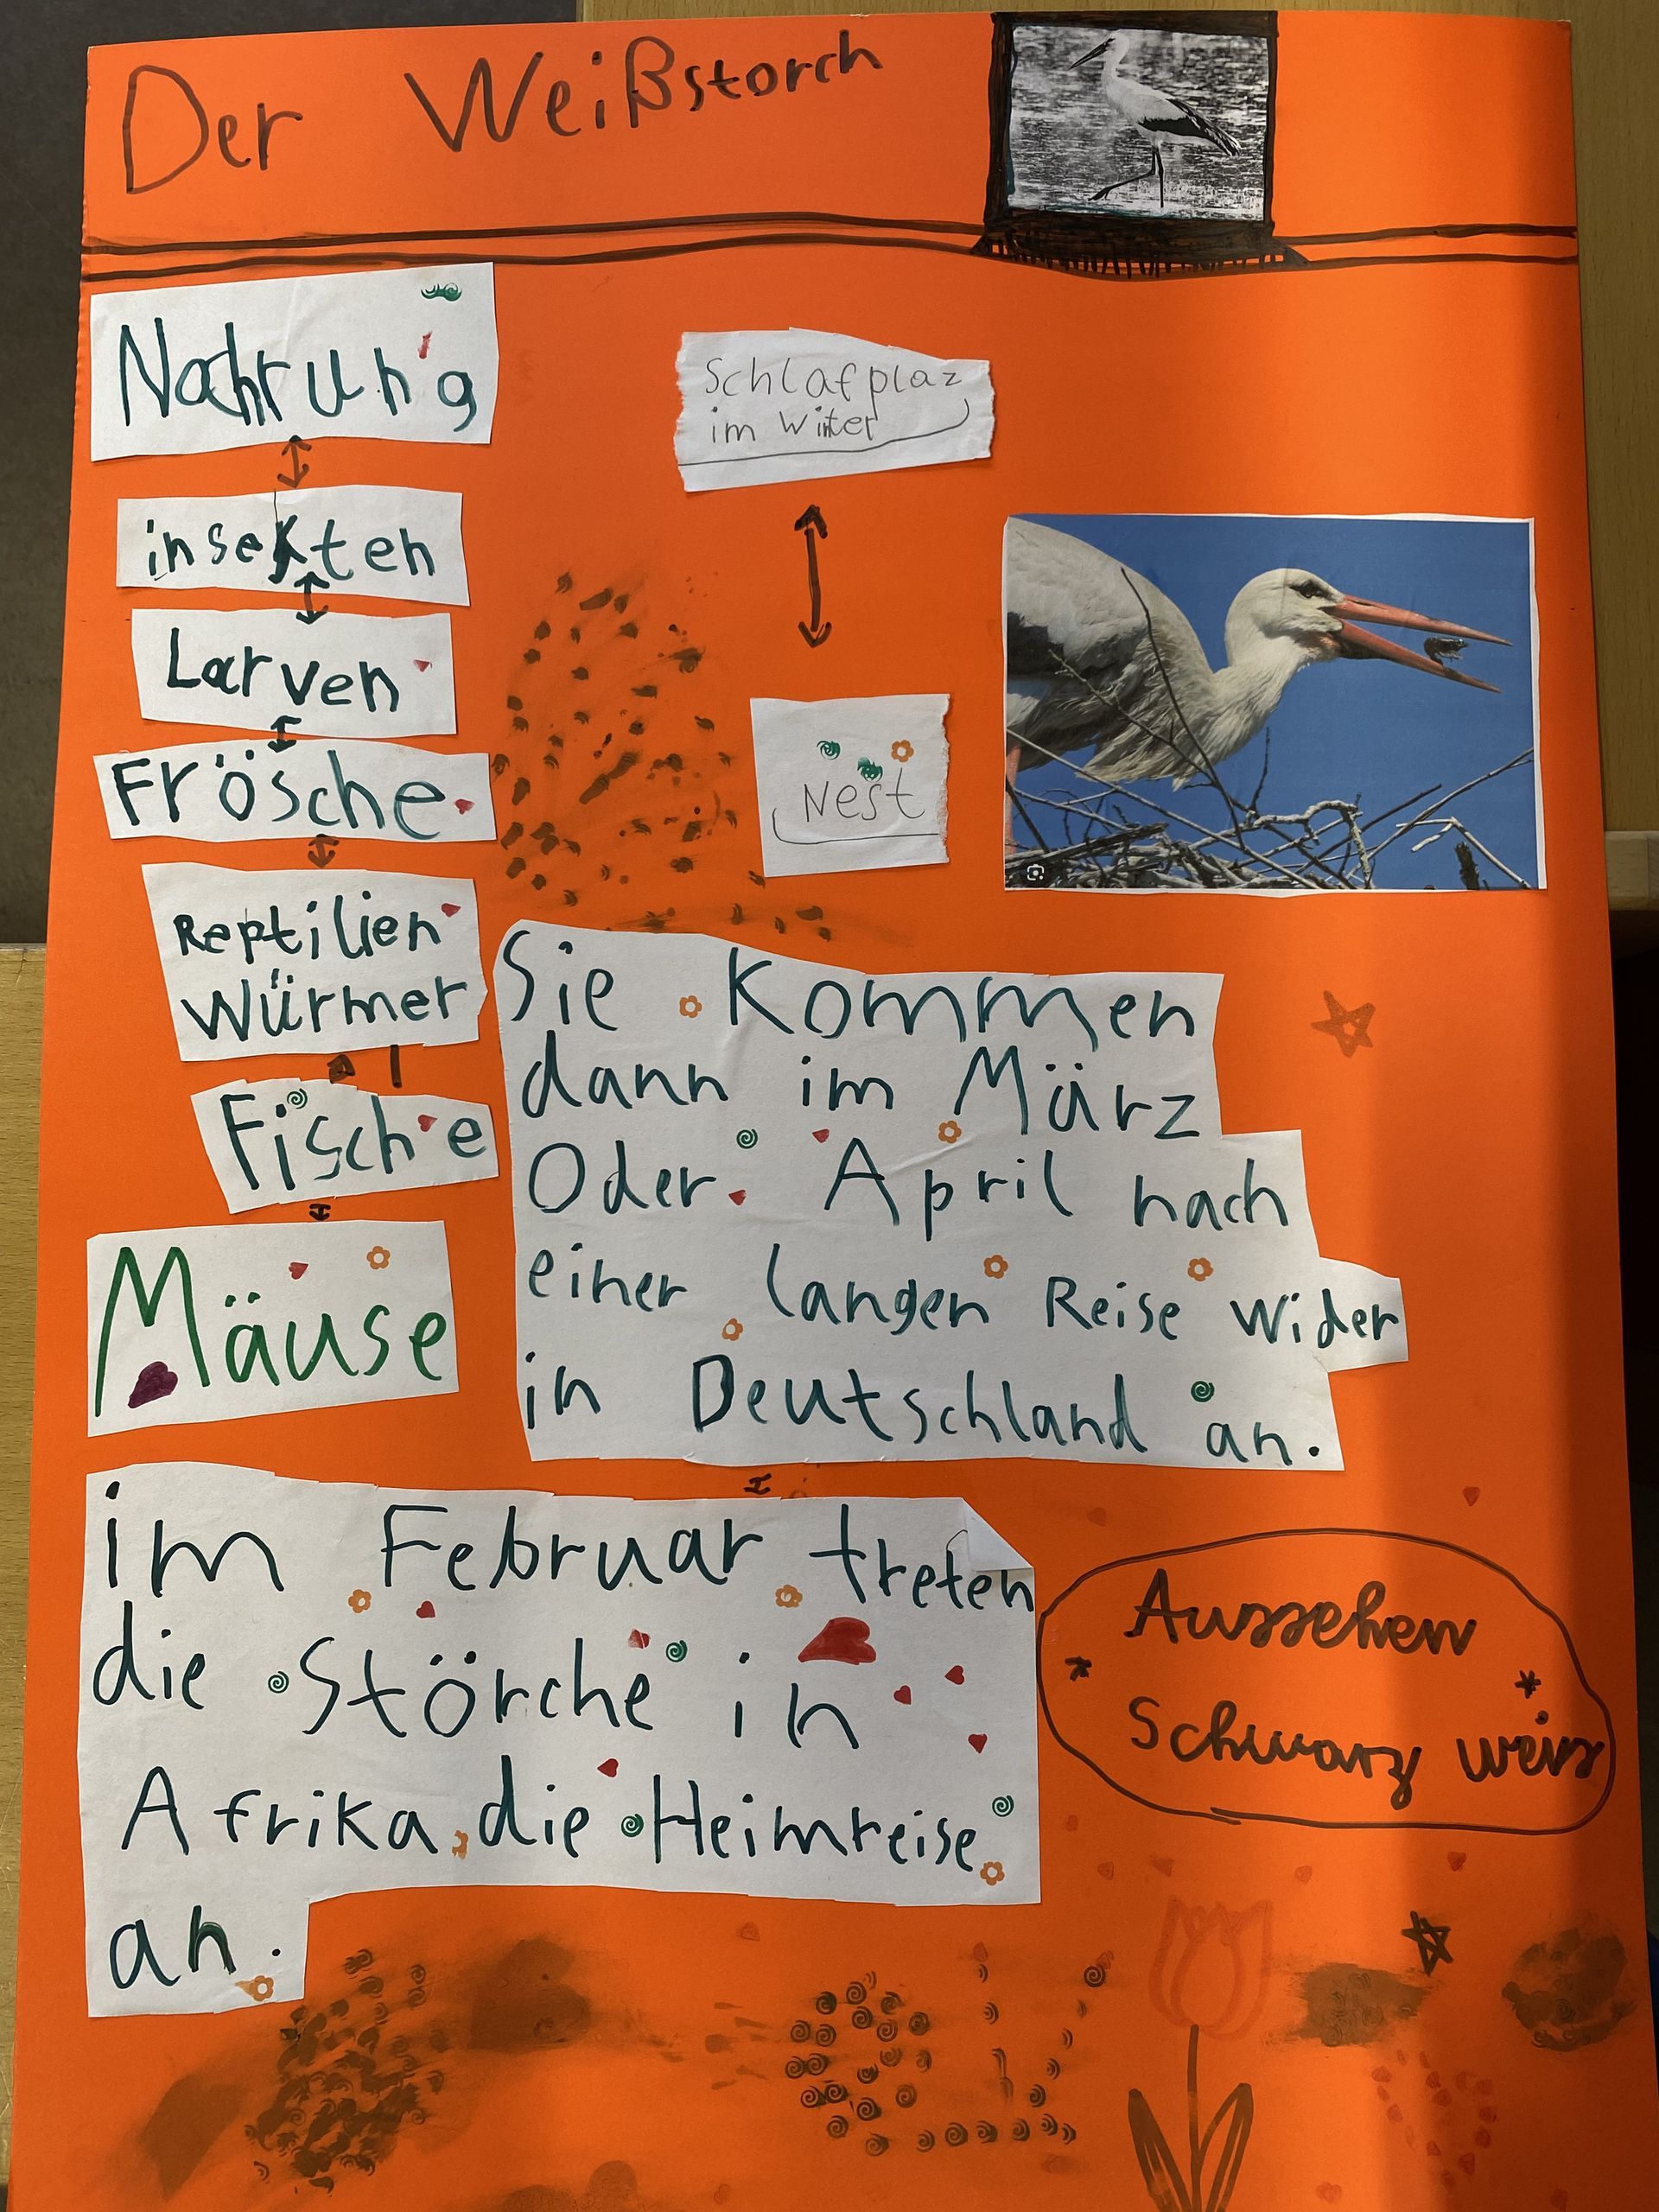 Der Weißstorch
Nahrung
insekten
Larven
Frösche
Reptilien
Würmer
Fische
Mäuse
Schlafplaz
im Winter
Nest
Sie Kommen
dann im März
Oder April nach
einer langen Reise wider
in Deutschland an.
im Februar treten
die Störche in
Afrika die Heimreise
an.
Aussehen
Schwarz weis